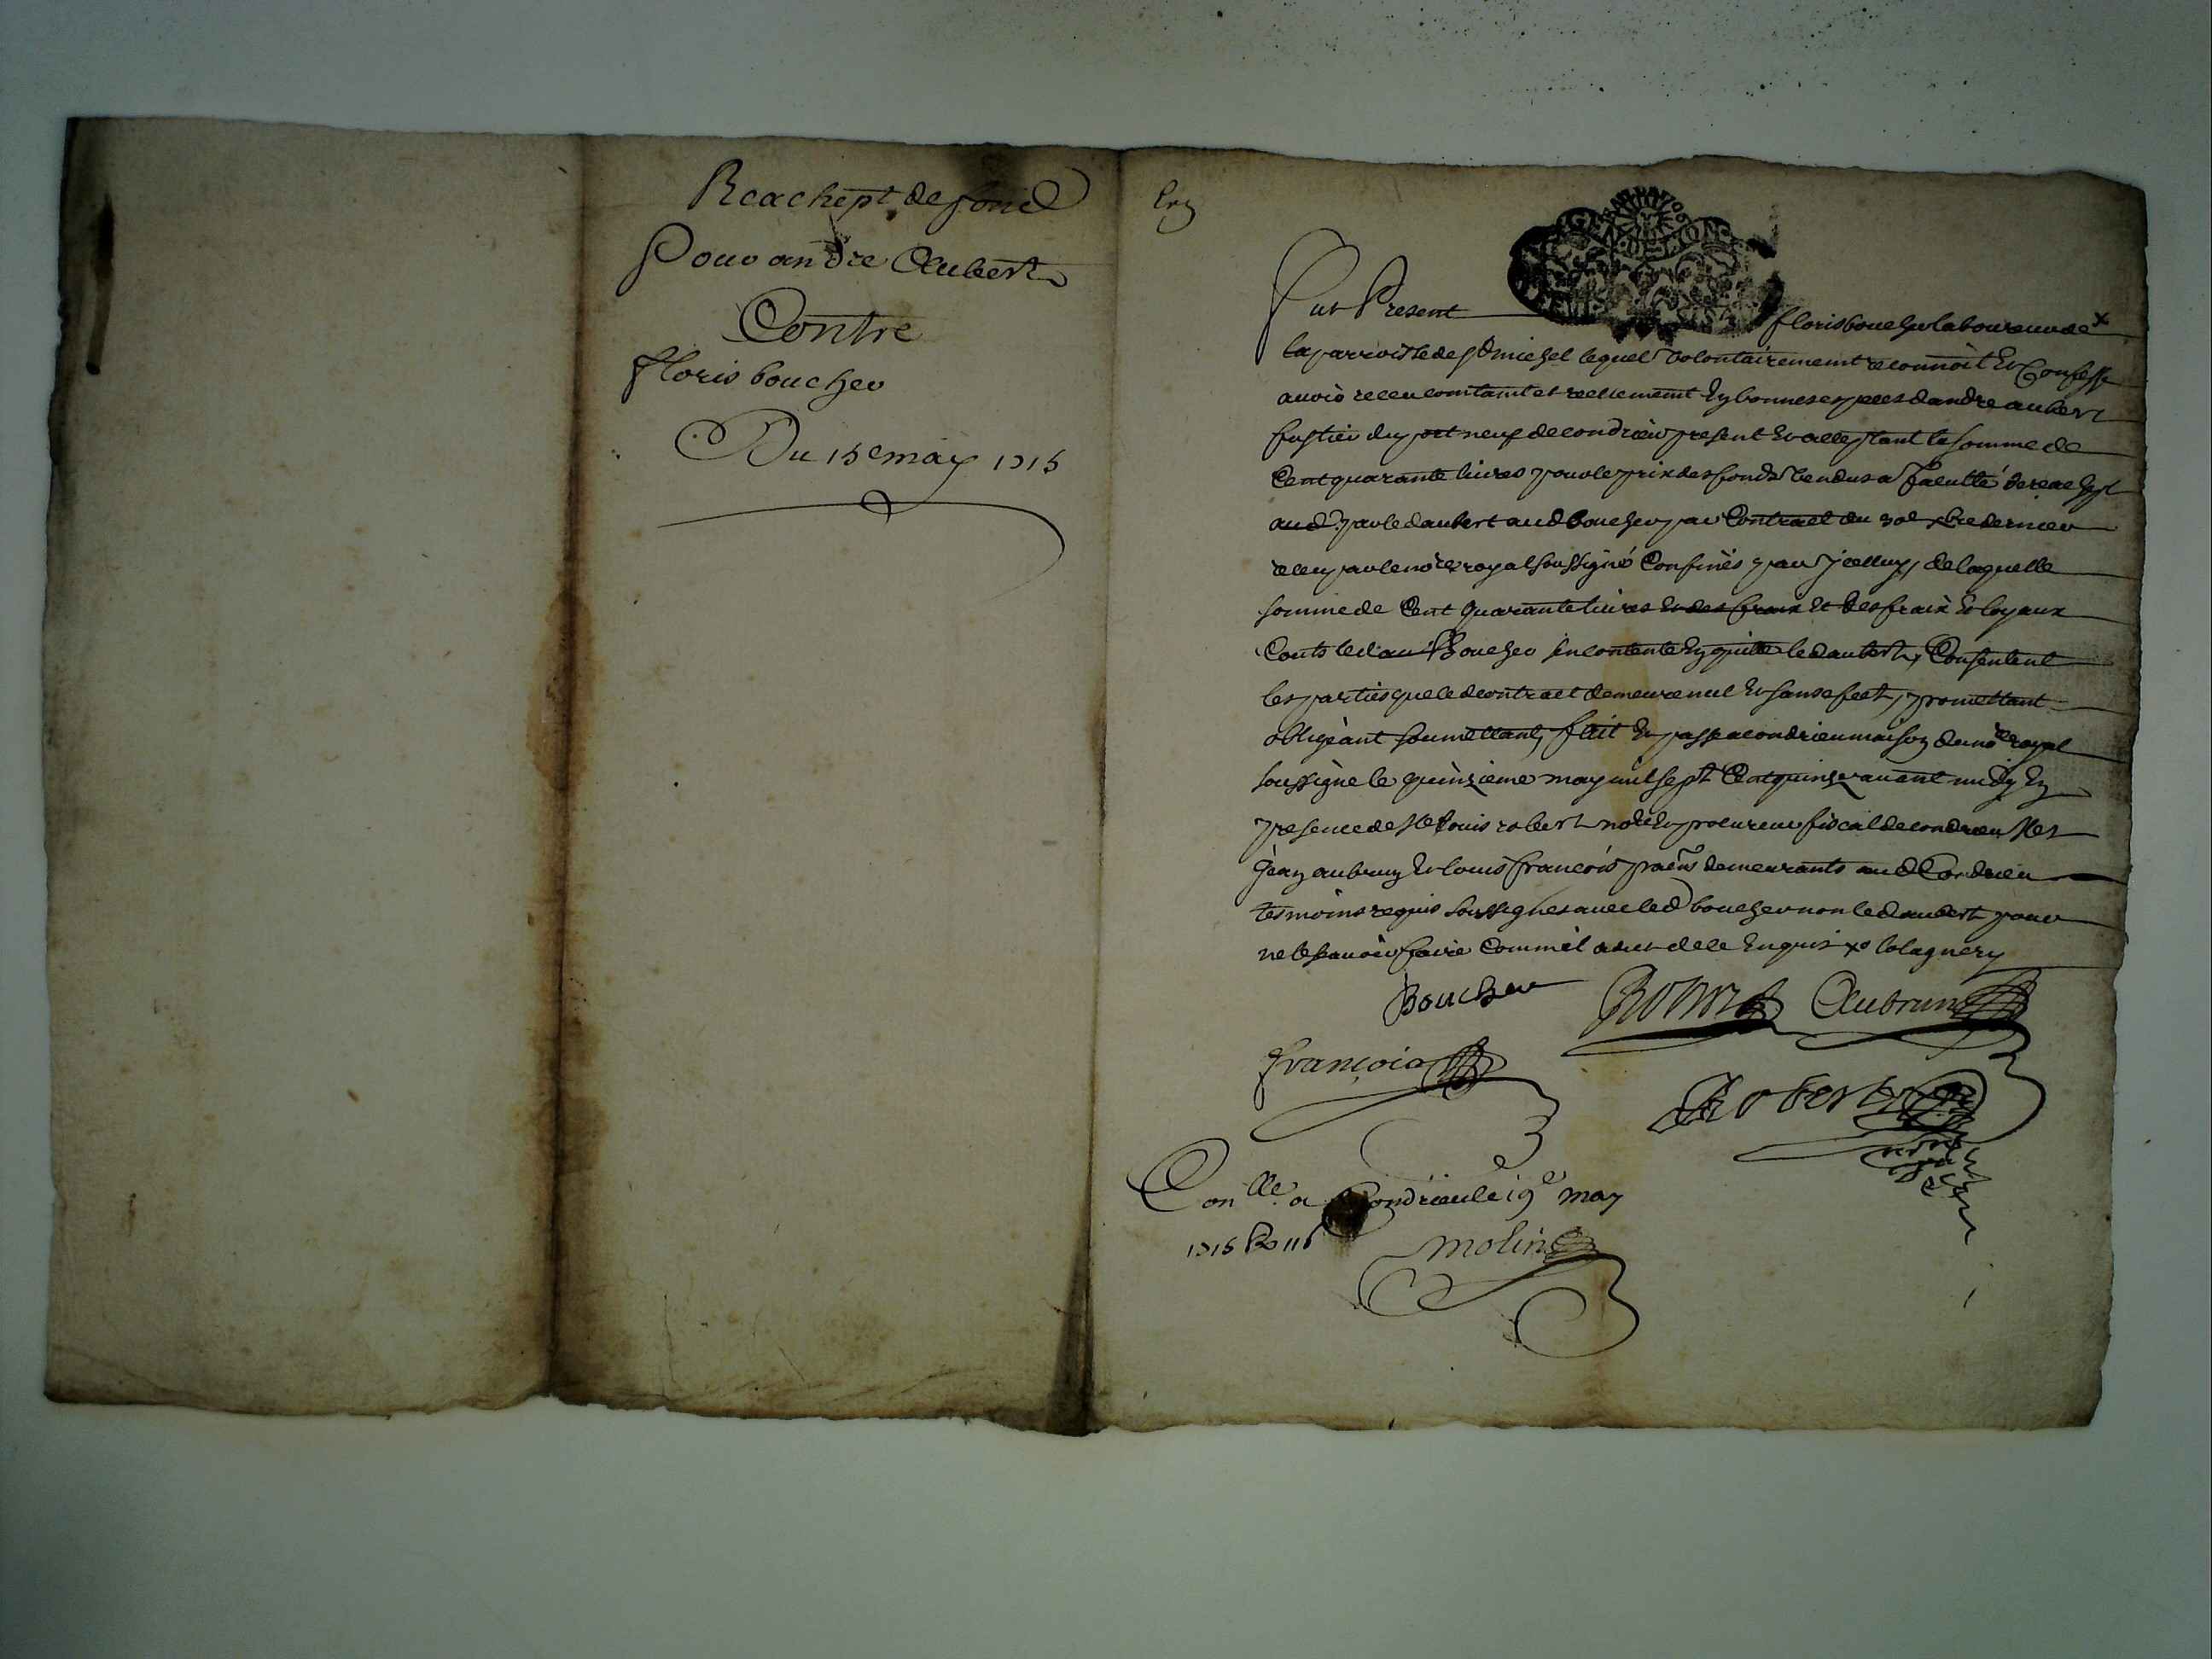 Reachept de fond
Pour andre Aubert
Contre
floris boucher
Du 15e may 1715
Exp
Fut Present floris boucher laboureur de x
la parroisse de St michel lequel volontairement reconnoit et Confesse
avoir receu comtamt et reellement en bonnes especes dandre aubert
fustier du port neuf de condrieu present et acceptant la somme de
Cent quarante livres pour le prix des fonds vendus a faculté de reachept
aud par led aubert aud boucher par Contract du xbre dernier
receu par le nore royal soussigné Confinés par jcelluy, de laquelle
somme de Cent quarante livres et des fraix et loyaux
Couts led Boucher sen contente en quitte led aubert, Consentent
les parties que led contract demeure nul et sans efect, promettant
obligeant soumettant, fait et passe a condrieu maison du nore royal
soussigne le quinzieme may mil sept Cent quinze avant midy en
presence de Me Louis robert nore et procureur fiscal de condrieu Me
jean aubrun et louis françois demeurants aud Condrieu
tesmoins requis soussignes avec led boucher non led aubert pour
ne le scavoir faire Comme il a dit de ce enquis
Boucher Robert Aubrun
françois
Robert
Conlle a Condrieu le 19e may
1715 R
molin